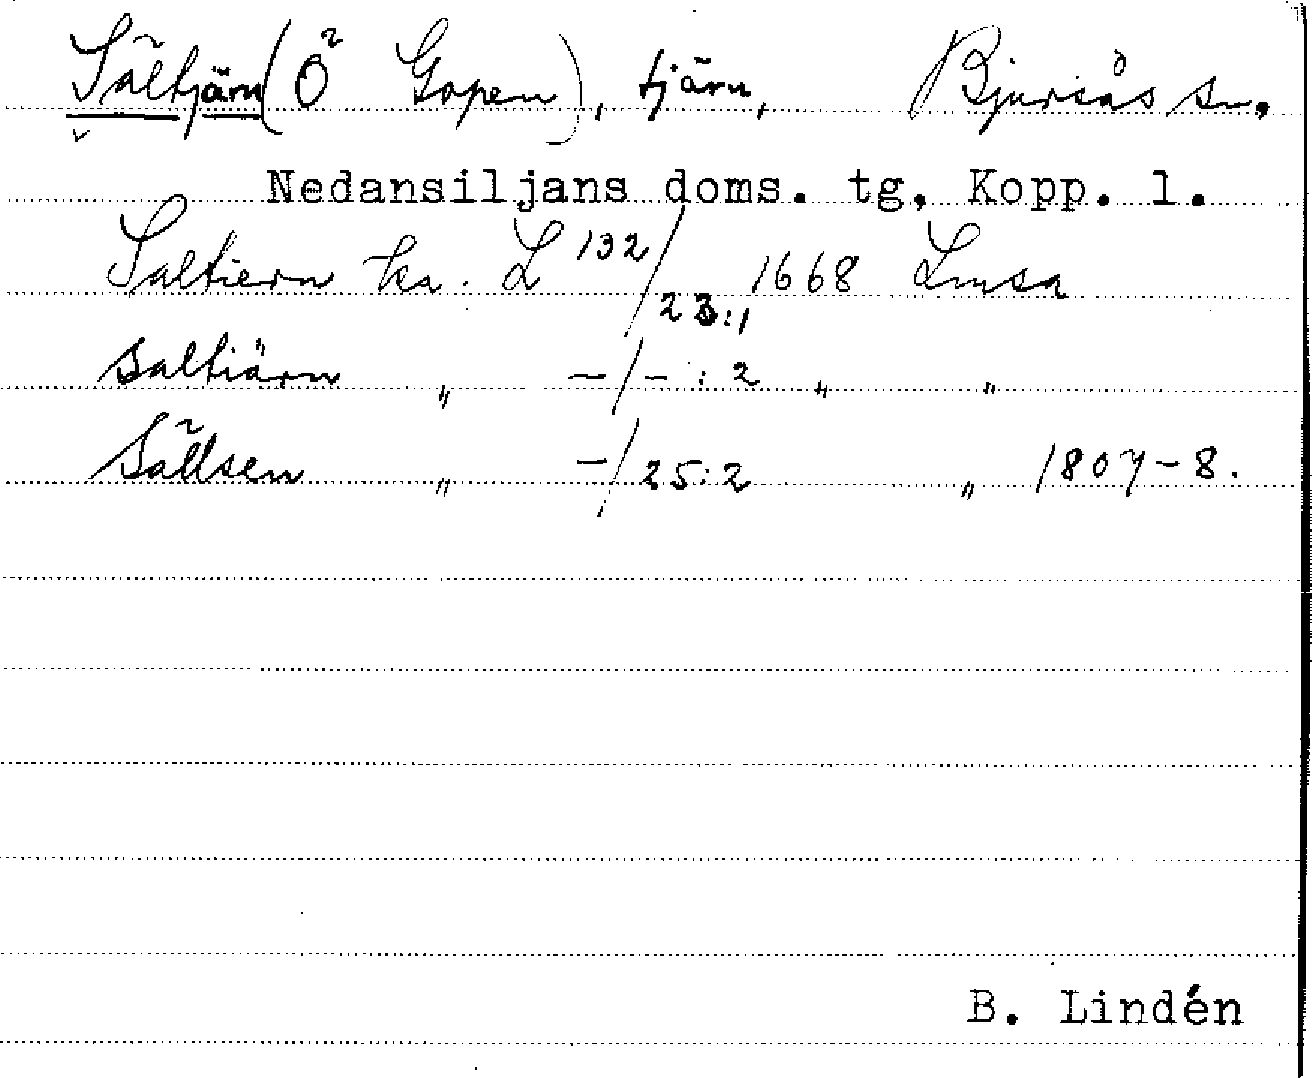 Sältjärn (Ö Gopen), tjärn, Bjursås sn.
Nedansiljans doms. tg. Kopp. l.
Saltiern ka. L 132/23:1 1668 Lmsa
Saltiärn " -/- : 2 " "
Sällsen " -/25:2 " 1807-8.
B. Lindén